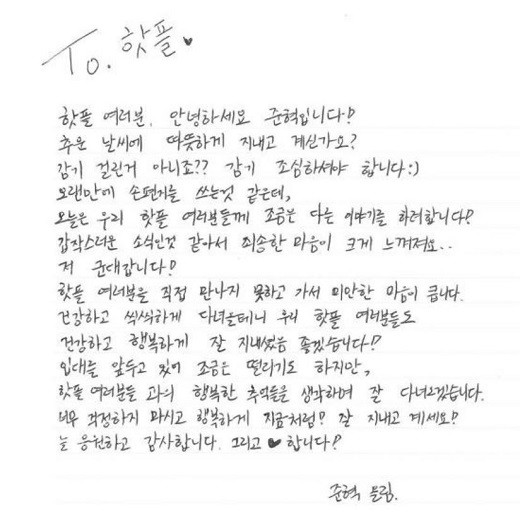 To. 핫플♥
핫플 여러분, 안녕하세요 준혁입니다!
추운 날씨에 따뜻하게 지내고 계신가요?
감기 걸린거 아니죠?? 감기 조심하셔야 합니다:)
오랜만에 손편지를 쓰는것 같은데,
오늘은 우리 핫플 여러분들께 조금은 다른 이야기를 하려합니다!
갑작스러운 소식인것 같아서 죄송한 마음이 크게 느껴져요..
저 군대갑니다!
핫플 여러분을 직접 만나지 못하고 가서 미안한 마음이 큽니다.
건강하고 씩씩하게 다녀올테니 우리 핫플 여러분들도
건강하고 행복하게 잘 지내셨음 좋겠습니다!
입대를 앞두고 있어 조금은 떨리기도 하지만,
핫플 여러분들 과의 행복한 추억들을 생각하며 잘 다녀오겠습니다.
너무 걱정하지 마시고 행복하게 지금처럼! 잘 지내고 계세요!
늘 응원하고 감사합니다. 그리고 ♥합니다!
준혁 올림.